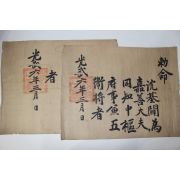 勅命
沈基開爲
嘉善大夫
同知中樞
府事兼五
衛將者
光武六年三月 日
者
光武六年三月 日